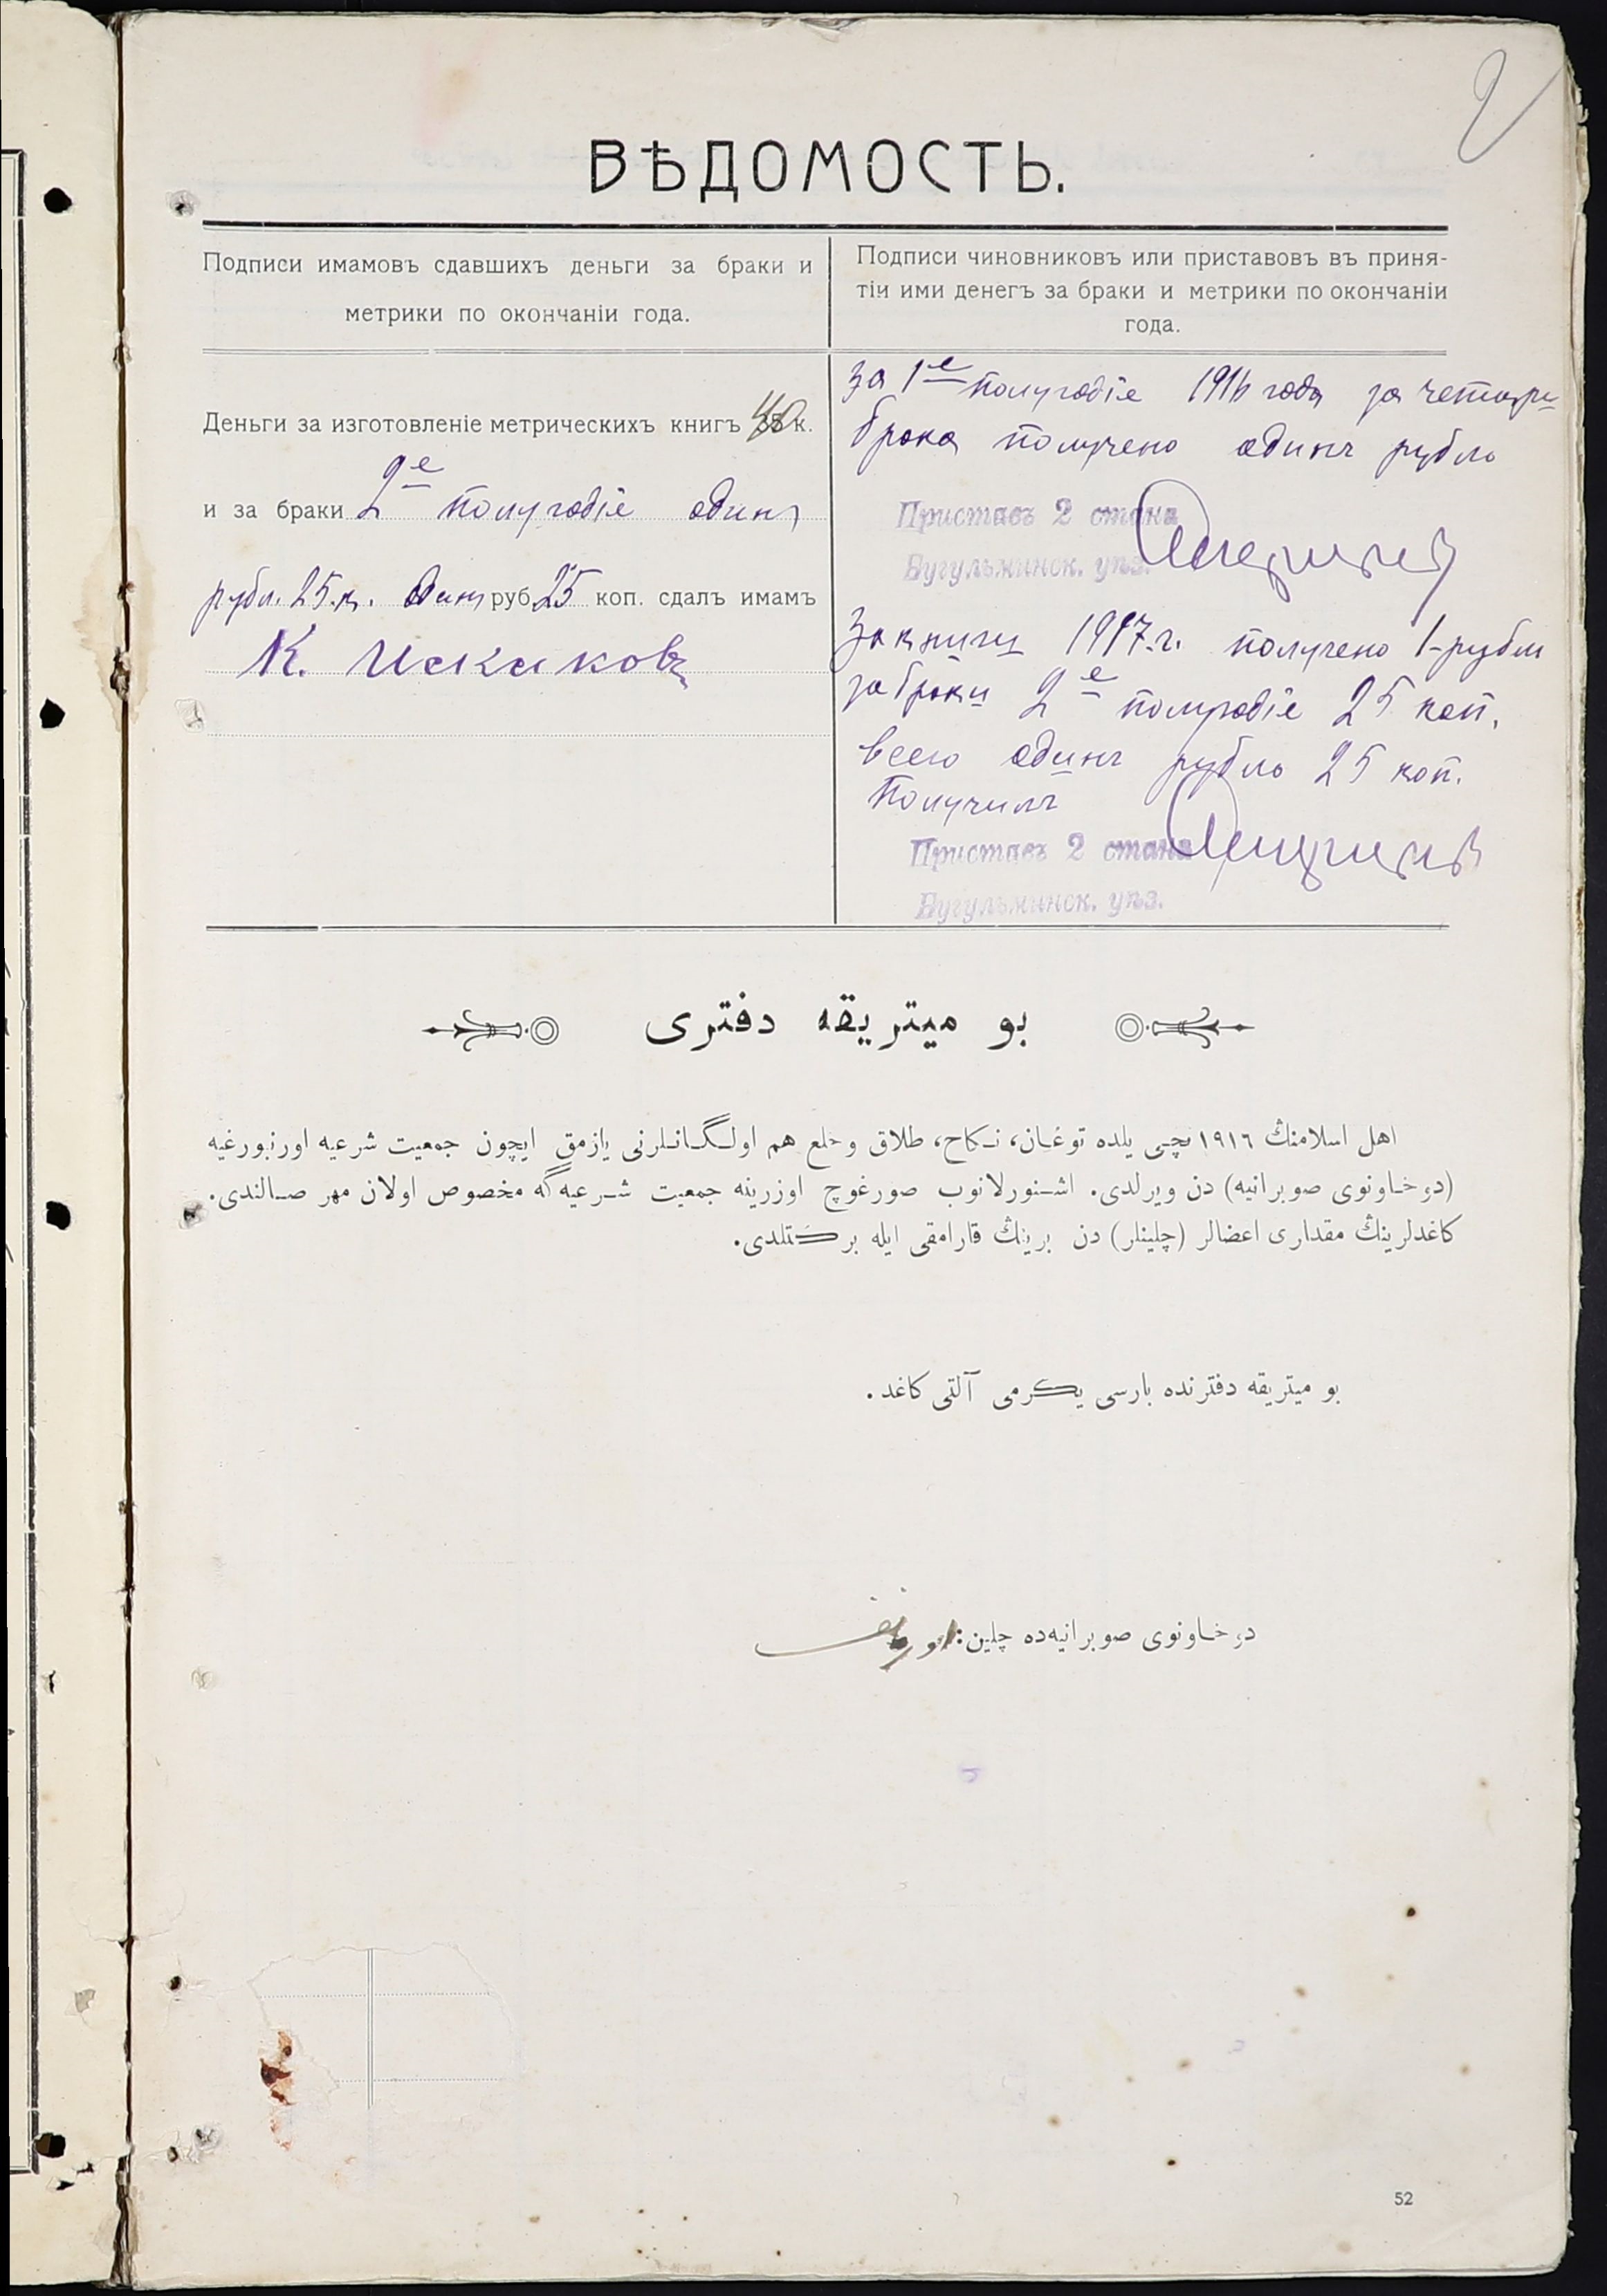 2
ВѢДОМОСТЬ.
Подписи имамовъ сдавшихъ деньги за браки и
метрики по окончаніи года.
Подписи чиновниковъ или приставовъ въ приня-
тіи ими денегъ за браки и метрики по окончаніи
года.
Деньги за изготовленіе метрическихъ книгъ 40 к.
и за браки 2е полугодіе одинъ
рубл. 25.к. Одинъ руб. 25 коп. сдалъ имамъ
К. Исхаковъ
За 1е полугодіе 1916 года за четыри
брака получено одинъ рубль
Приставъ 2 стана
Бугульминск. уѣз.
За книги 1917.г. получено 1-рубль
за браки 2е полугодіе 25 коп.
всего одинъ рубль 25 коп.
Получилъ
Приставъ 2 стана
Бугульминск. уѣз.
بو ميتريقه دفترى
اهل اسلامنڭ ١٩١٦ نچى يلده توغان، نكاح، طلاق وخلع هم اولگانلرنى يازمق ايچون جمعيت شرعيه اورنبورغيه
(دوخاونوى صوبرانيه) دن ويرلدى. اشنورلانوب صورغوچ اوزرينه جمعيت شرعيه گه مخصوص اولان مهر صالندى.
كاغدلرينڭ مقدارى اعضالر (چلينلر) دن برينڭ قارامقى ايله بركتلدى.
بو ميتريقه دفترنده بارسى يكرمى آلتى كاغد.
دوخاونوى صوبرانيه‌ده چلين:
52